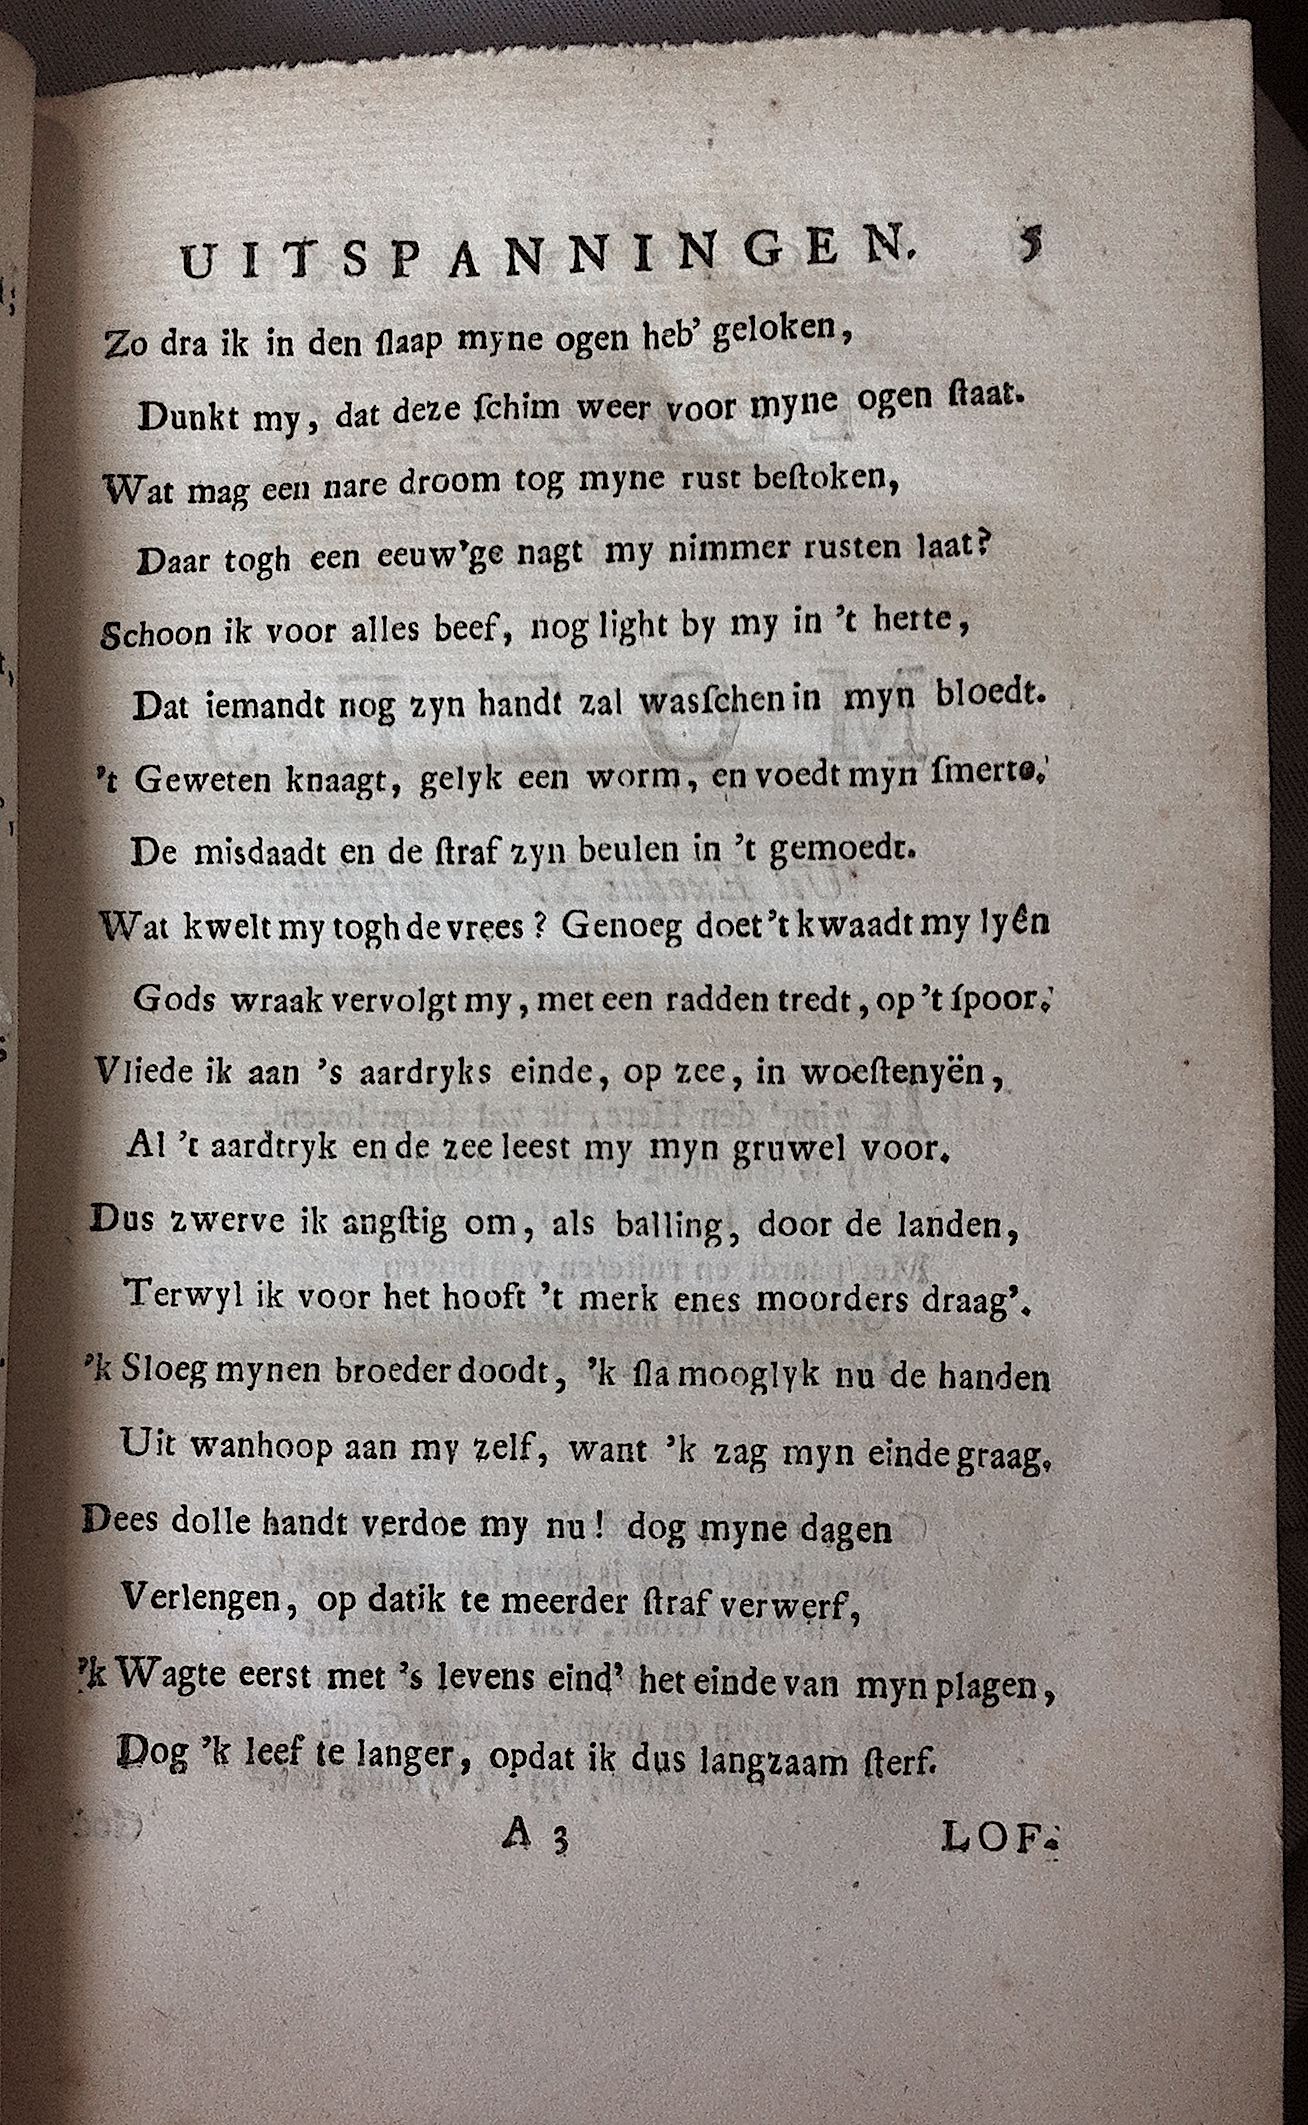 UITSPANNINGEN. 5
Zo dra ik in den ſlaap myne ogen heb’ geloken,
Dunkt my, dat deze ſchim weer voor myne ogen ſtaat.
Wat mag een nare droom tog myne rust beſtoken,
Daar togh een eeuw’ge nagt my nimmer rusten laat?
Schoon ik voor alles beef, nog light by my in ’t herte,
Dat iemandt nog zyn handt zal wasſchen in myn bloedt.
’t Geweten knaagt, gelyk een worm, en voedt myn ſmerte.
De misdaadt en de ſtraf zyn beulen in ’t gemoedt.
Wat kwelt my togh de vrees? Genoeg doet ’t kwaadt my lyên
Gods wraak vervolgt my, met een radden tredt, op ’t ſpoor.
Vliede ik aan ’s aardryks einde, op zee, in woeſtenyën,
Al ’t aardtryk en de zee leest my myn gruwel voor.
Dus zwerve ik angſtig om, als balling, door de landen,
Terwyl ik voor het hooft ’t merk enes moorders draag’.
’k Sloeg mynen broeder doodt, ’k ſla mooglyk nu de handen
Uit wanhoop aan my zelf, want ’k zag myn einde graag.
Dees dolle handt verdoe my nu! dog myne dagen
Verlengen, op datik te meerder ſtraf verwerf,
’k Wagte eerst met ’s levens eind’ het einde van myn plagen,
Dog ’k leef te langer, opdat ik dus langzaam ſterf.
A 3 LOF-